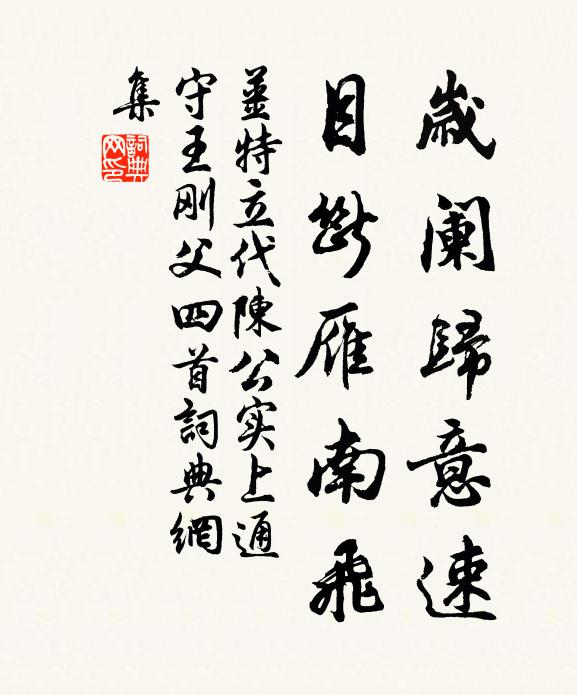 歲阑歸意速
目斷雁南飛
薑特立代陳公实上通
守王刚父四首詞典網
集
詞典
网印